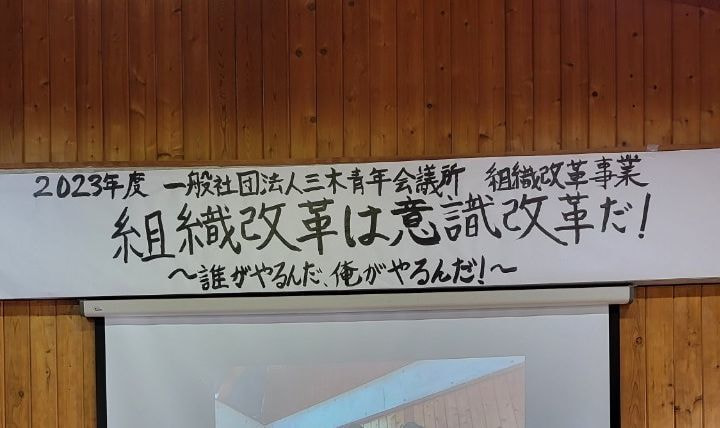 2023年度 一般社団法人三木青年会議所 組織改革事業
組織改革は意識改革だ!
～誰がやるんだ、俺がやるんだ!～